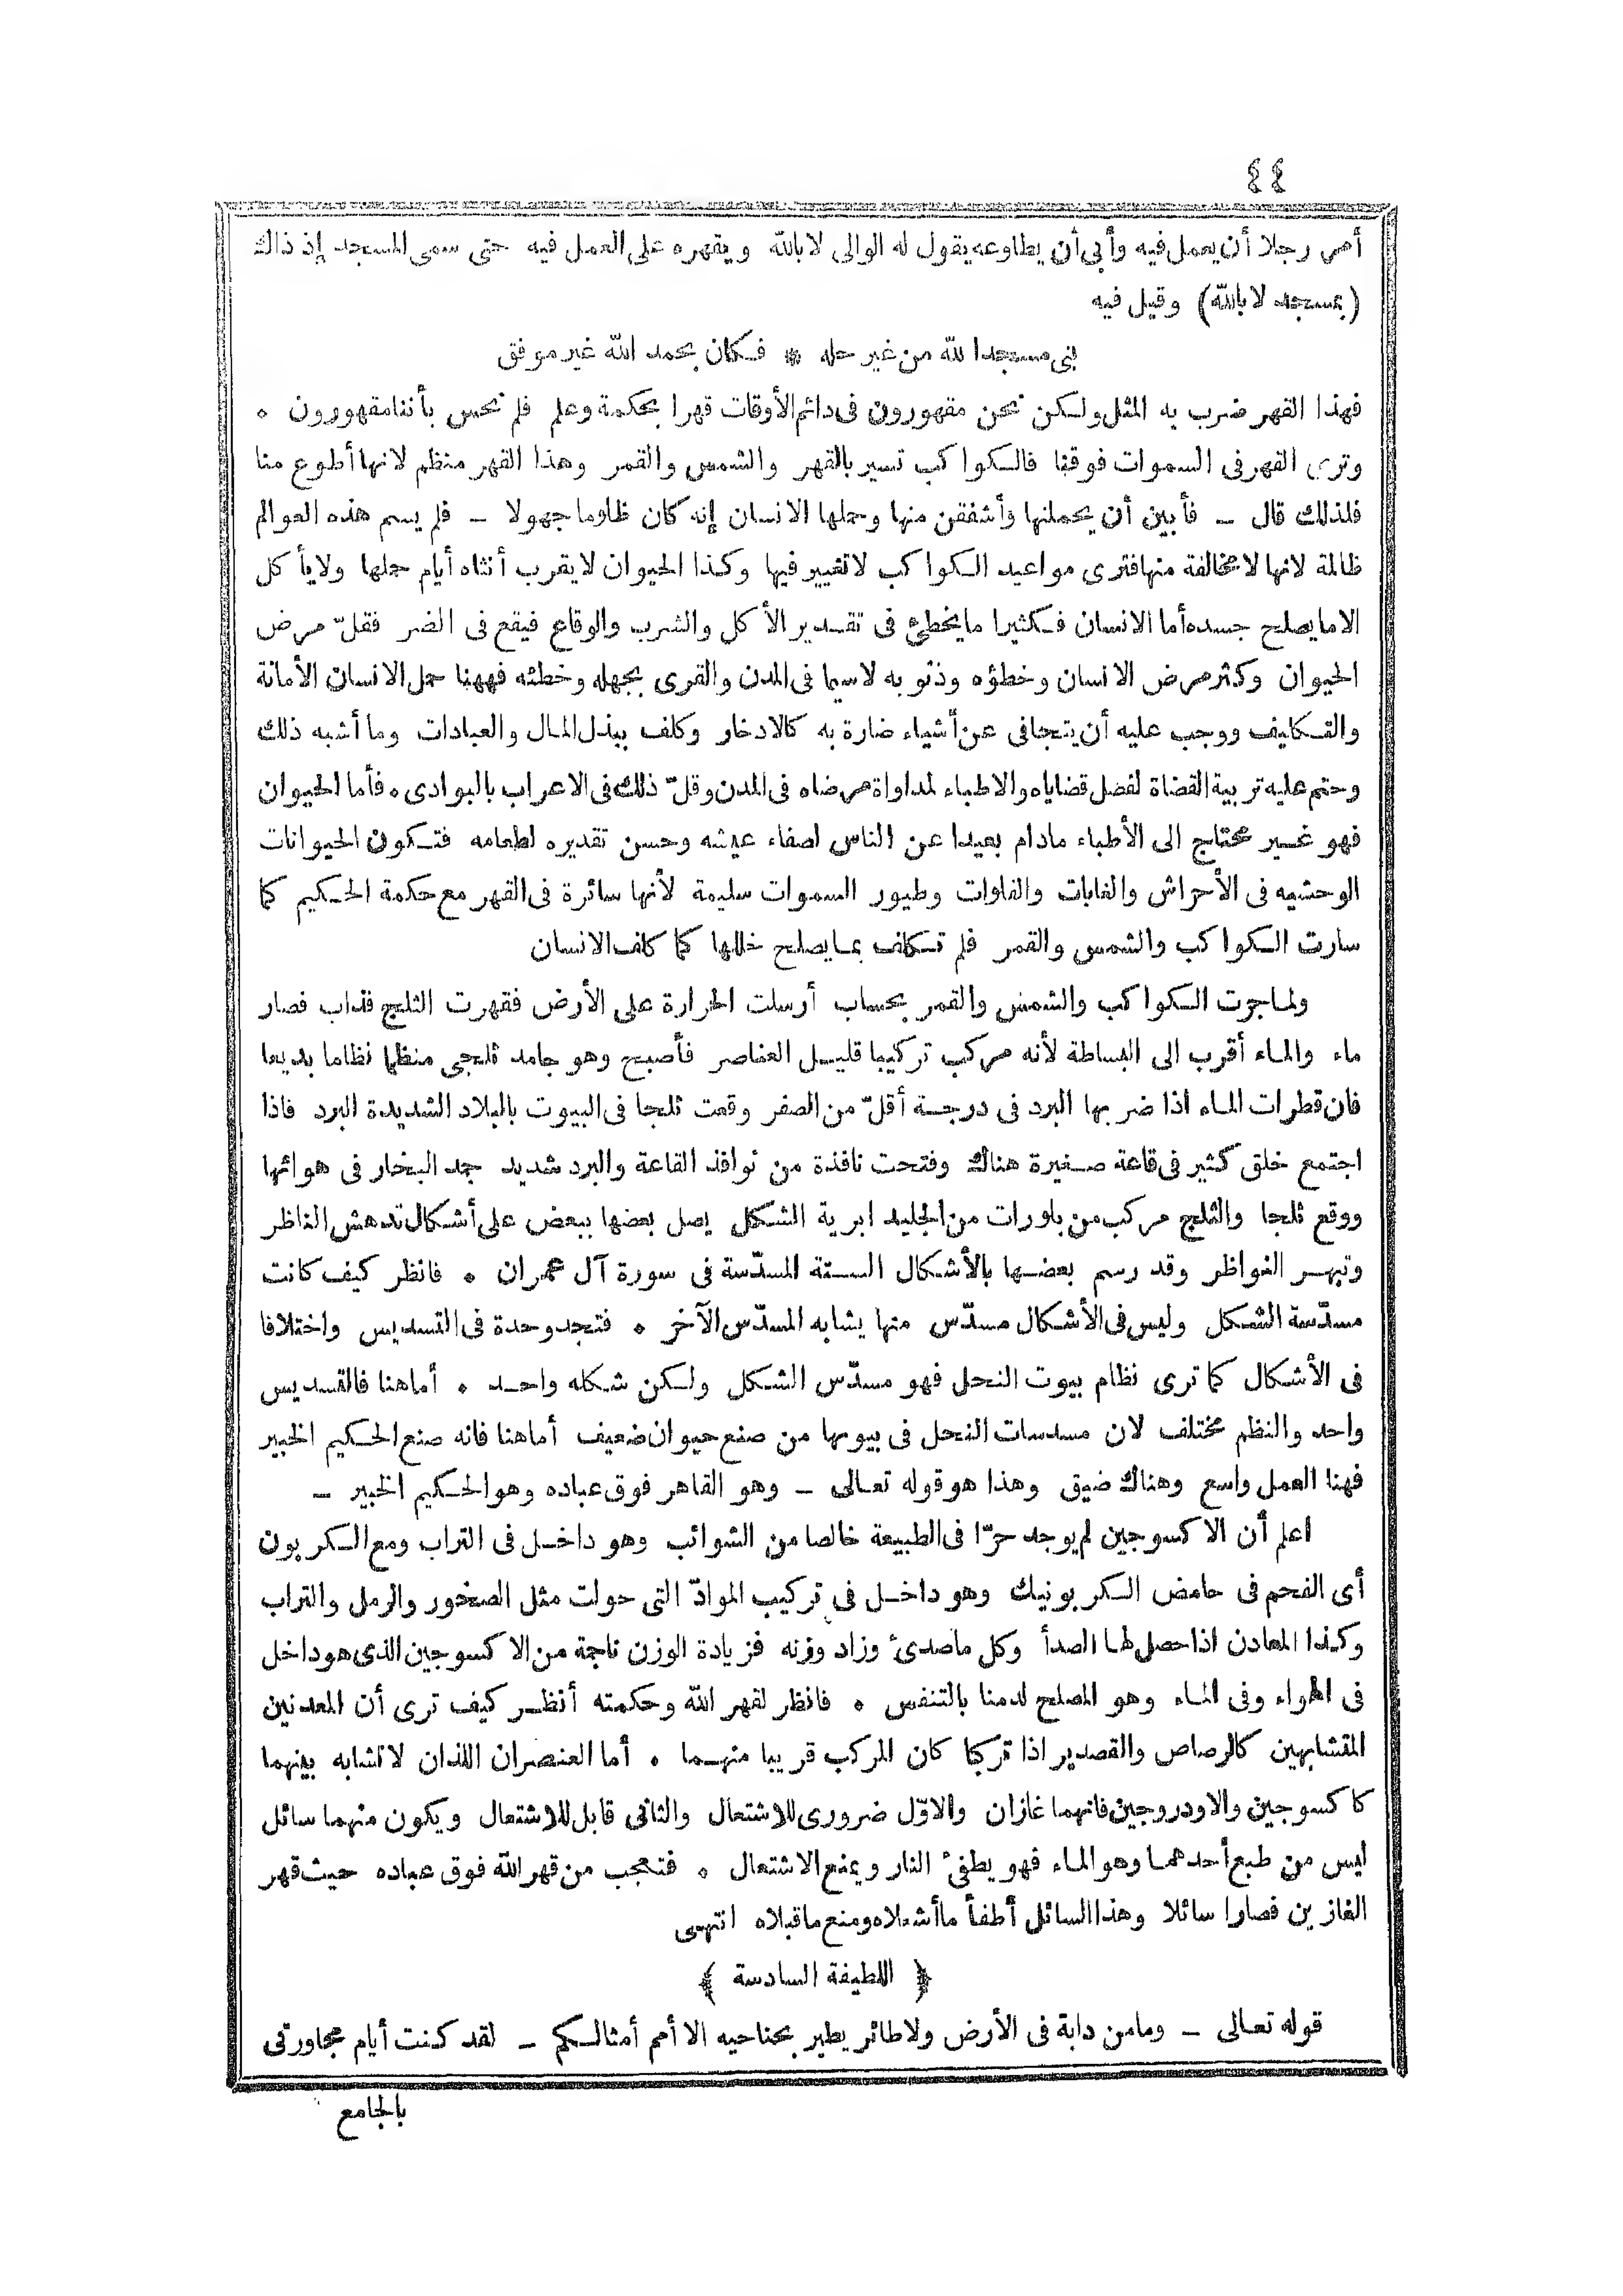 ٤٤
أمر رجلا أن يعمل فيه وأبى أن يطاوعه يقول له الوالى لا بالله ويقهره على العمل فيه حتى سمى المسجد إذ ذاك
(مسجد لا بالله) وقيل فيه
بنى مسجدا لله من غير حله * فكان بحمد الله غير موفق
فهذا القهر ضرب به المثل ولكن نحن مقهورون فى دائم الأوقات قهرا بحكمة وعلم فلم نحس بأننا مقهورون .
وترى القهر فى السموات فوقنا فالكواكب تسير بالقهر والشمس والقمر وهذا القهر منظم لانها أطوع منا
فلذلك قال - فأبين أن يحملنها وأشفقن منها وحملها الانسان إنه كان ظلوما جهولا - فلم يسم هذه العوالم
ظالمة لانها لا مخالفة منها فترى مواعيد الكواكب لا تغيير فيها وكذا الحيوان لا يقرب أنثاه أيام حملها ولا يأكل
الا ما يصلح جسده أما الانسان فكثيرا ما يخطئ فى تقدير الأكل والشرب والوقاع فيقع فى الضر فقلّ مرض
الحيوان وكثر مرض الانسان وخطؤه وذنوبه لاسيما فى المدن والقرى بجهله وخطئه فههنا حمل الانسان الأمانة
والتكليف ووجب عليه أن يتجافى عن أشياء ضارة به كالادخار وكلف ببذل المال والعبادات وما أشبه ذلك
وحتم عليه تربية القضاة لفصل قضاياه والاطباء لمداواة مرضاه فى المدن وقلّ ذلك فى الاعراب بالبوادى . فأما الحيوان
فهو غير محتاج الى الأطباء مادام بعيدا عن الناس لصفاء عيشه وحسن تقديره لطعامه فتكون الحيوانات
الوحشيه فى الأحراش والغابات والفلوات وطيور السموات سليمة لأنها سائرة فى القهر مع حكمة الحكيم كما
سارت الكواكب والشمس والقمر فلم تكلف بما يصلح خللها كما كلف الانسان
ولما جرت الكواكب والشمس والقمر بحساب أرسلت الحرارة على الأرض فقهرت الثلج فذاب فصار
ماء والماء أقرب الى البساطة لأنه مركب تركيبا قليل العناصر فأصبح وهو جامد ثلجى منظما نظاما بديعا
فان قطرات الماء اذا ضربها البرد فى درجة أقلّ من الصفر وقعت ثلجا فى البيوت بالبلاد الشديدة البرد فاذا
اجتمع خلق كثير فى قاعة صغيرة هناك وفتحت نافذة من نوافذ القاعة والبرد شديد جمد البخار فى هوائها
ووقع ثلجا والثلج مركب من بلورات من الجليد ابرية الشكل يصل بعضها ببعض على أشكال تدهش الناظر
وتبهر النواظر وقد رسم بعضها بالأشكال الستة المسدّسة فى سورة آل عمران . فانظر كيف كانت
مسدّسة الشكل وليس فى الأشكال مسدّس منها يشابه المسدّس الآخر . فتجد وحدة فى التسديس واختلافا
فى الأشكال كما ترى نظام بيوت النحل فهو مسدّس الشكل ولكن شكله واحد . أما هنا فالتسديس
واحد والنظم مختلف لان مسدسات النحل فى بيوتها من صنع حيوان ضعيف أما هنا فانه صنع الحكيم الخبير
فهنا العمل واسع وهناك ضيق وهذا هو قوله تعالى - وهو القاهر فوق عباده وهو الحكيم الخبير -
اعلم أن الاكسوجين لم يوجد حرّا فى الطبيعة خالصا من الشوائب وهو داخل فى التراب ومع الكربون
أى الفحم فى حامض الكربونيك وهو داخل فى تركيب الموادّ التى حولت مثل الصخور والرمل والتراب
وكذا المعادن اذا حصل لها الصدأ وكل ما صدئ وزاد وزنه فزيادة الوزن ناجمة من الاكسوجين الذى هو داخل
فى الهواء وفى الماء وهو المصلح لدمنا بالتنفس . فانظر لقهر الله وحكمته أنظر كيف ترى أن المعدنين
المتشابهين كالرصاص والقصدير اذا تركبا كان المركب قريبا منهما . أما العنصران اللذان لا تشابه بينهما
كاكسوجين والاودروجين فانهما غازان والاوّل ضرورى للاشتعال والثانى قابل للاشتعال ويكون منهما سائل
ليس من طبع أحدهما وهو الماء فهو يطفئ النار ويمنع الاشتعال . فتعجب من قهر الله فوق عباده حيث قهر
الغازين فصارا سائلا وهذا السائل أطفأ ما أشعلاه ومنع ما قبلاه انتهى
﴿ اللطيفة السادسة ﴾
قوله تعالى - وما من دابة فى الأرض ولا طائر يطير بجناحيه الا أمم أمثالكم - لقد كنت أيام مجاورتى
بالجامع